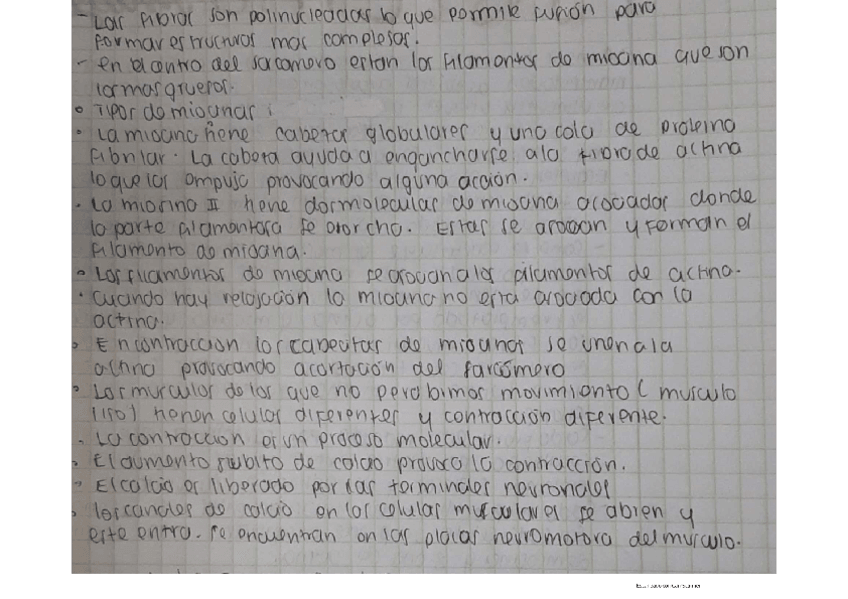 - Las fibras son polinucleadas lo que permite fusión para
formar estructuras mas complejas.
- en el centro del sarcomero estan los filamentos de miosina que son
los mas gruesos.
• Tipos de miosinas:
• La miosina tiene cabezas globulares y una cola de proteina
fibrilar. La cabeza ayuda a engancharse a la fibra de actina
lo que los empuja provocando alguna acción.
• La miosina II tiene dos moleculas de miosina asociadas donde
la parte filamentosa se estrecha. Estas se asocian y forman el
filamento de miosina.
• Los filamentos de miosina se asocian a los filamentos de actina.
• Cuando hay relajación la miosina no esta asociada con la
actina.
• En contraccion los cabezitas de miosinas se unen a la
actina provocando acortación del sarcómero
• Los musculos de los que no percibimos movimiento (musculo
liso) tienen celulas diferentes y contracción diferente.
• La contraccion es un proceso molecular.
• El aumento subito de calcio provoca la contracción.
• El calcio es liberado por las terminales neuronales
• los canales de calcio en las celulas musculares se abren y
este entra. se encuentran en las placas neuromotora del musculo.